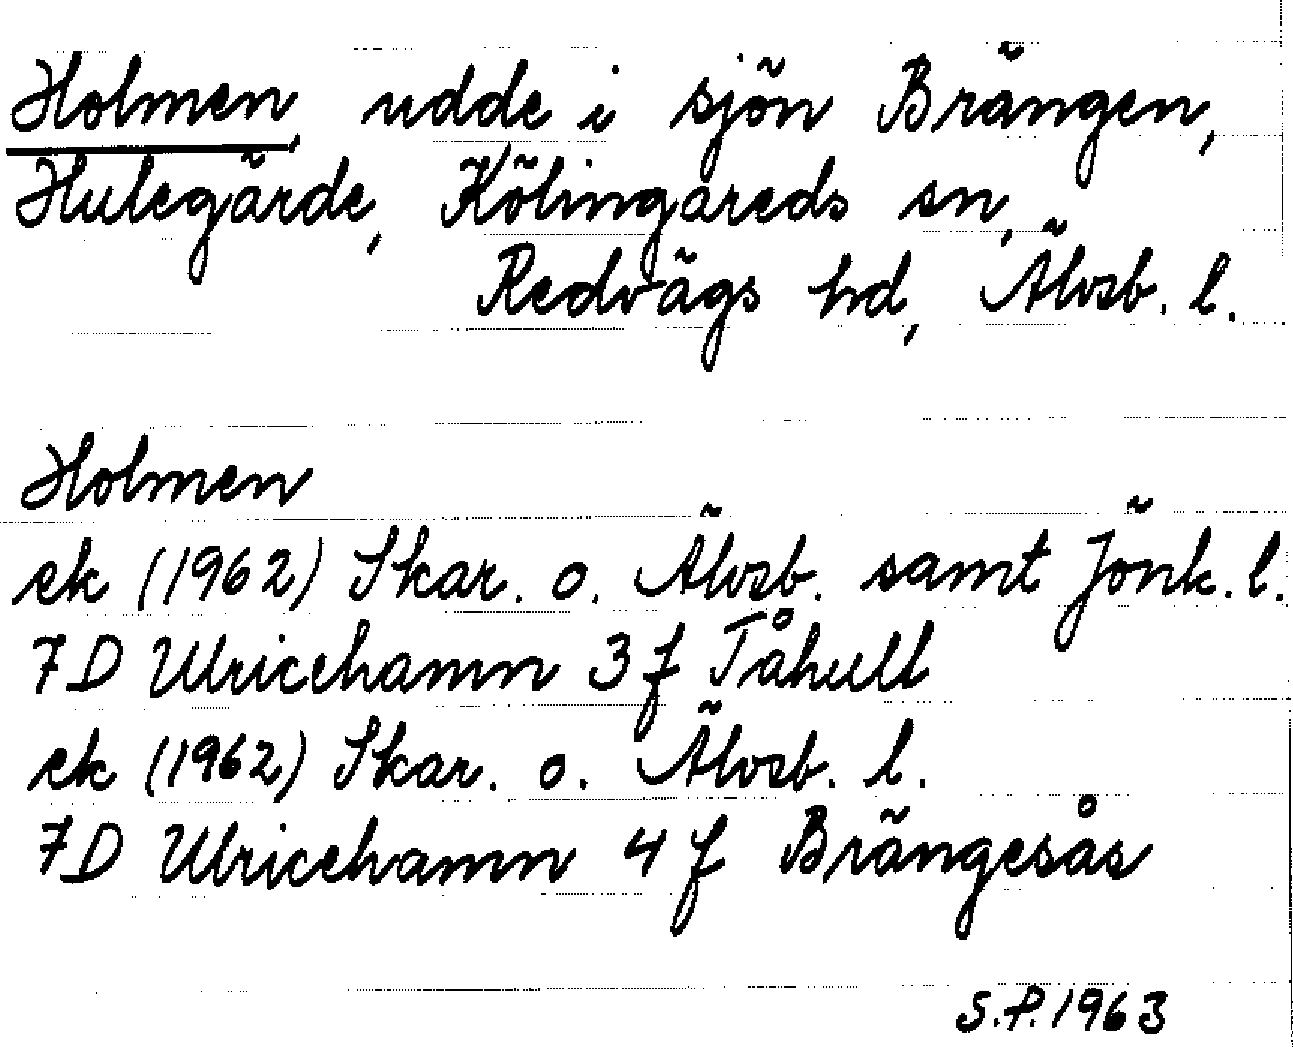 Holmen, udde i sjön Brängen,
Hulegärde, Kölingareds sn,
Redvägs hd, Älvsb. l.
Holmen
ek (1962) Skar. o. Älvsb. samt Jönk. l.
7D Ulricehamn 3f Tåhult
ek (1962) Skar. o. Älvsb. l.
7D Ulricehamn 4f Brängesås
S.P. 1963